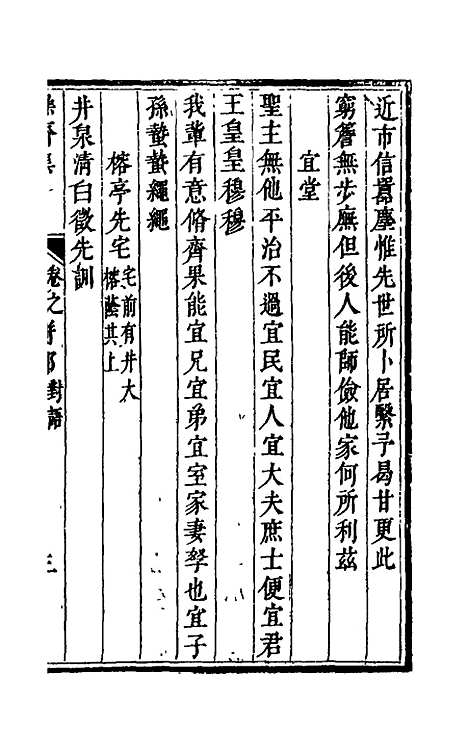 近市信囂塵惟先世所卜居緊予曷甘更此
窮簷無步廡但後人能師儉他家何所利茲
宜堂
聖主無他平治不過宜民宜人宜大夫庶士便宜君
王皇皇穆穆
我輩有意脩齊果能宜兄宜弟宜室家妻孥也宜子
孫蟄蟄繩繩
榕亭先宅宅前有井大榕蔭其上
井泉清白徵先訓
卷之 對語 三